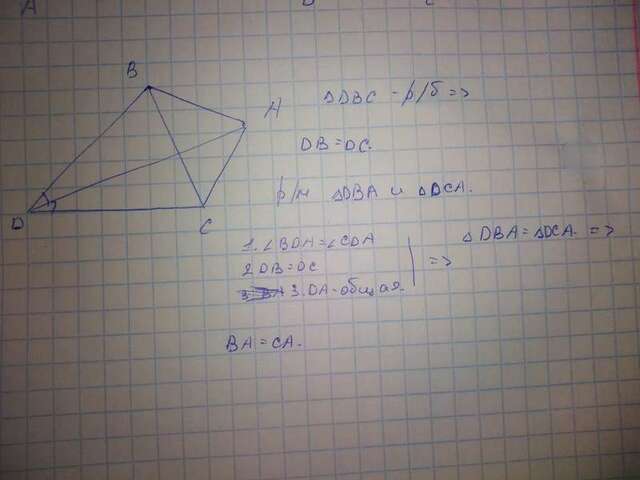 A
B
A
D
C
△DBC - р/б =>
DB = DC.
р/м △DBA и △DCA.
1. ∠BDA = ∠CDA
2. DB = DC
3. DA - общая.
=>
△DBA = △DCA. =>
BA = CA.